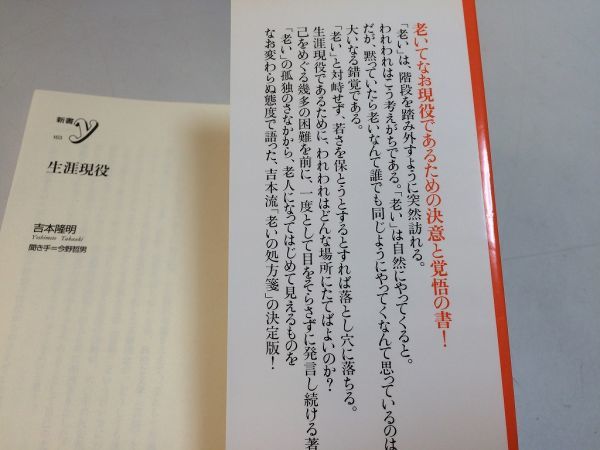 老いてなお現役であるための決意と覚悟の書！
「老い」は、階段を踏み外すように突然訪れる。
われわれはこう考えがちである。「老い」は自然にやってくると。
だが、黙っていたら老いなんて誰でも同じようにやってくなんて思っているのは
大いなる錯覚である。
「老い」と対峙せず、若さを保とうとするとすれば落とし穴に落ちる。
生涯現役であるために、われわれはどんな場所にたてばよいのか？
己をめぐる幾多の困難を前に、一度として目をそらさずに発言し続ける著
「老い」の孤独のさなかから、老人になってはじめて見えるものを
なお変わらぬ態度で語った、吉本流「老いの処方箋」の決定版！
新書y
生涯現役
吉本隆明
Yoshimoto Takaaki
聞き手＝今野哲男